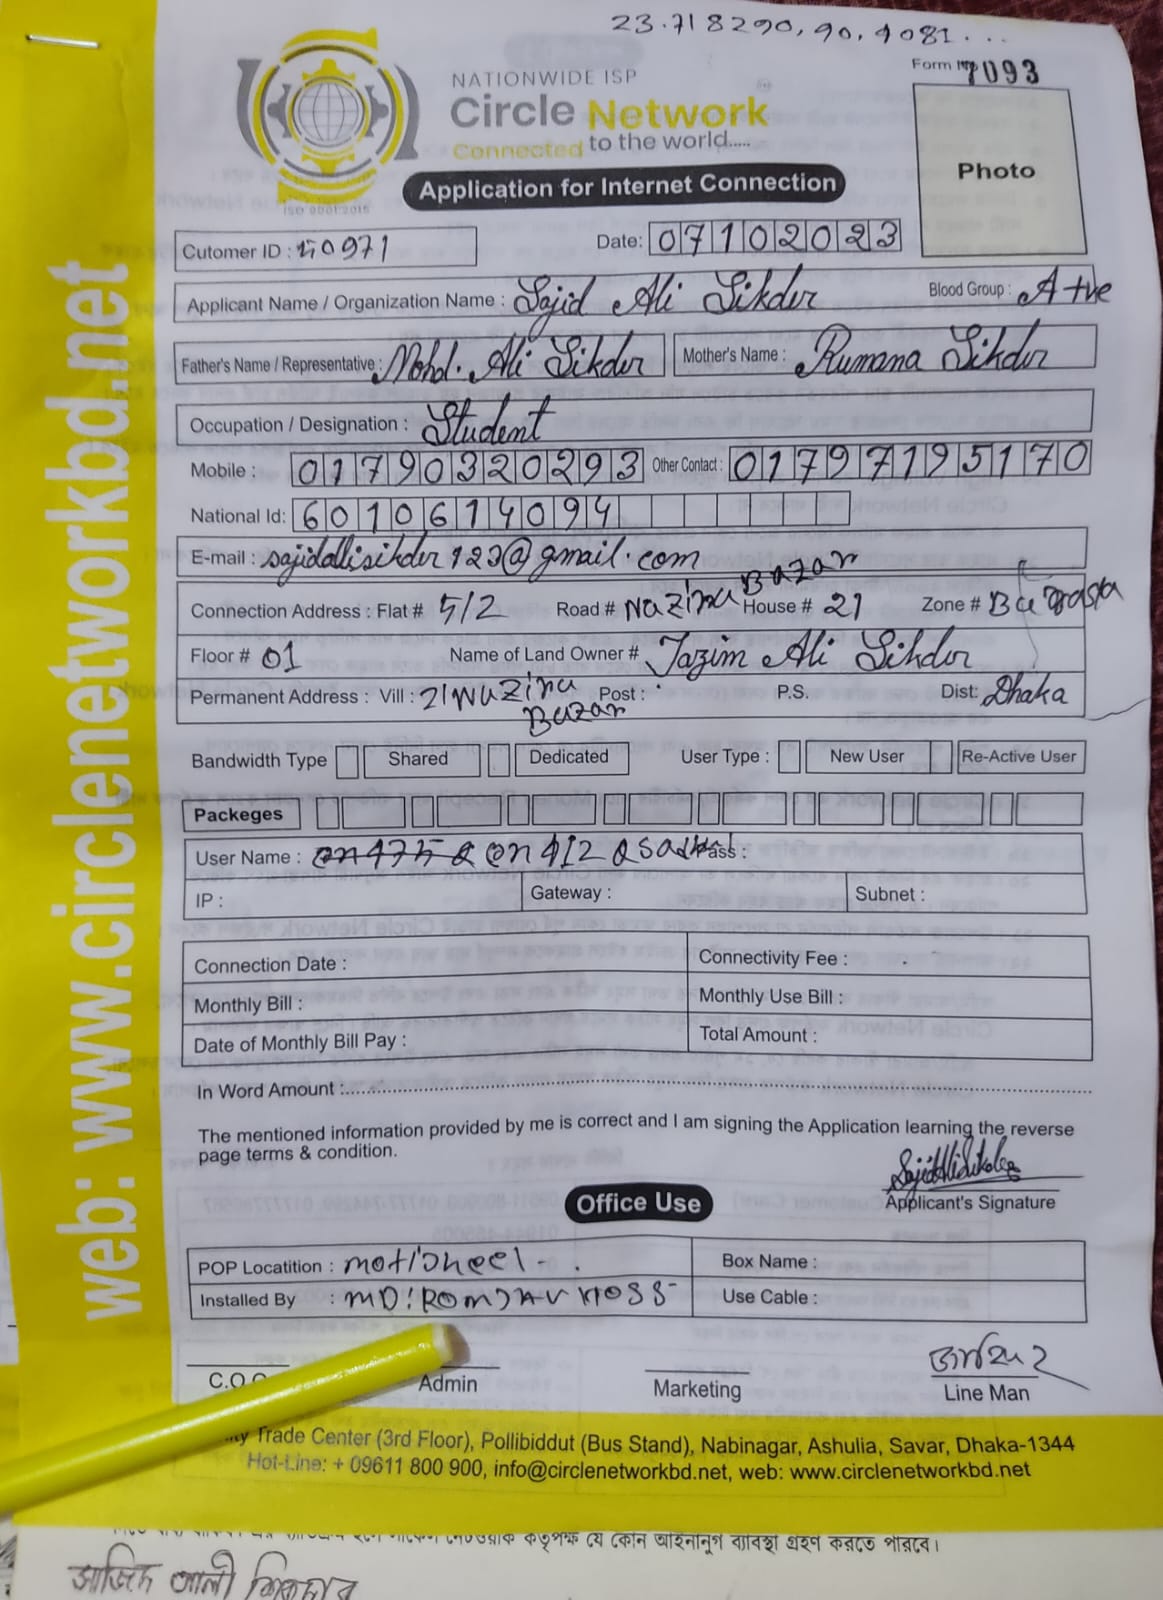 23.718290, 90.4081...
Form No 7093
NATIONWIDE ISP
Circle Network
Connected to the world.....
ISO 9001:2015
Photo
Application for Internet Connection
Cutomer ID : 50971
Date: 07102023
Applicant Name / Organization Name : Sajid Ali Sikder Blood Group : A +ve
Father's Name / Representative : Mohd. Ali Sikder Mother's Name : Rumana Sikder
Occupation / Designation : Student
Mobile : 01790320293 Other Contact : 01797195170
National Id: 6010614094
E-mail : sajidalisikder123@gmail.com
Connection Address : Flat # 5/2 Road # Nazira Bazar House # 21 Zone #
Floor # 01 Name of Land Owner # Tazim Ali Sikder
Permanent Address : Vill : 21 Nazira Bazar Post : P.S. Dist: Dhaka
Bandwidth Type Shared Dedicated User Type : New User Re-Active User
Packeges
User Name : Pass :
IP : Gateway : Subnet :
Connection Date : Connectivity Fee :
Monthly Bill : Monthly Use Bill :
Date of Monthly Bill Pay : Total Amount :
In Word Amount :
The mentioned information provided by me is correct and I am signing the Application learning the reverse
page terms & condition.
Sajid Ali Sikder
Applicant's Signature
Office Use
POP Locatition : motijheel - . Box Name :
Installed By : MD: ROMJAN HOSS Use Cable :
C.O.O Admin Marketing Line Man
Trade Center (3rd Floor), Pollibiddut (Bus Stand), Nabinagar, Ashulia, Savar, Dhaka-1344
Hot-Line: + 09611 800 900, info@circlenetworkbd.net, web: www.circlenetworkbd.net
web: www.circlenetworkbd.net
কতৃপক্ষ যে কোন আইনানুগ ব্যাবস্থা গ্রহণ করতে পারবে।
সাজিদ আলী সিকদার